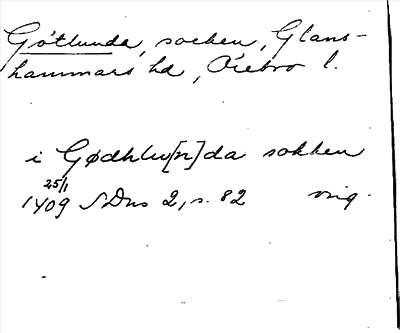 Götlunda, socken, Glans-
hammars hd, Örebro l.
i Gødhlu[n]da sokken
25/1
1409 SDns 2, s. 82 orig.